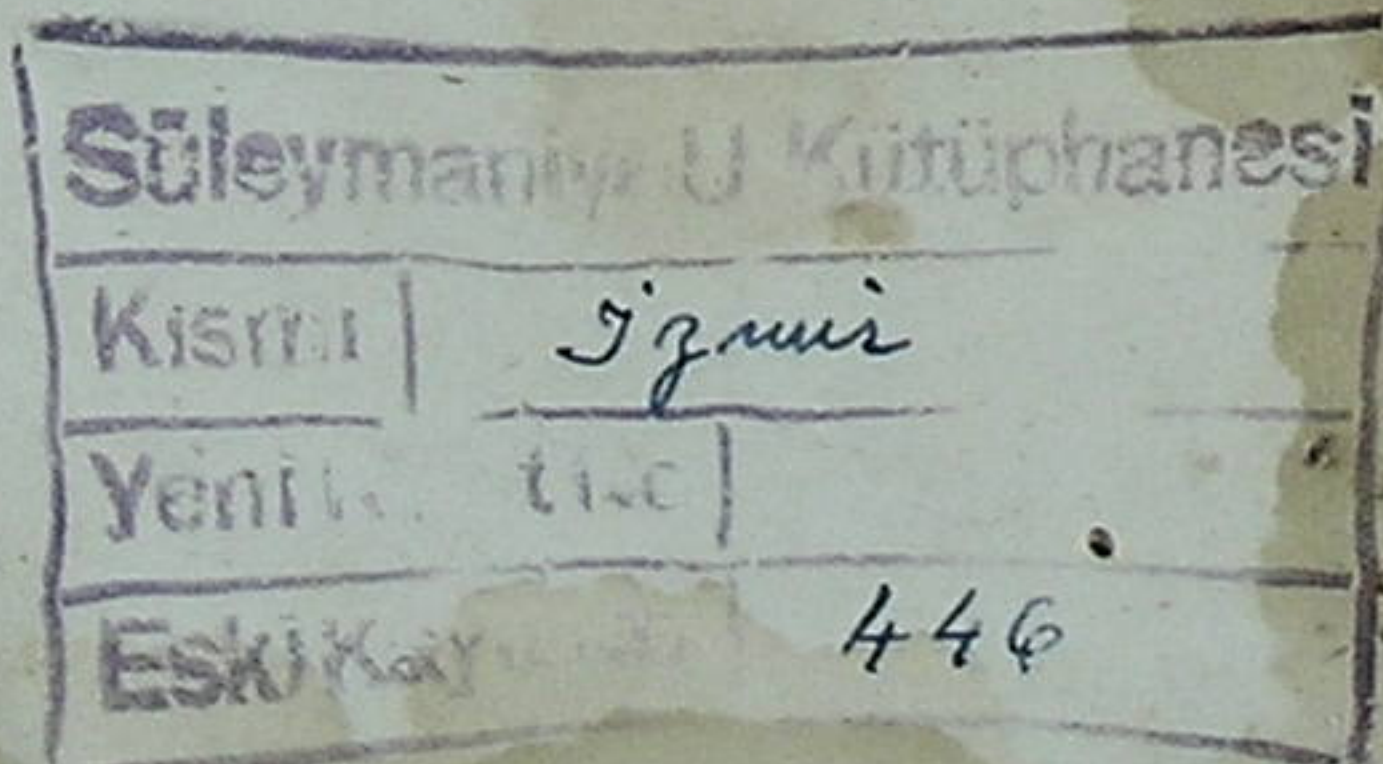 Süleymaniye U Kütüphanesi
Kısmı İzmir
Yeni
Eski 446